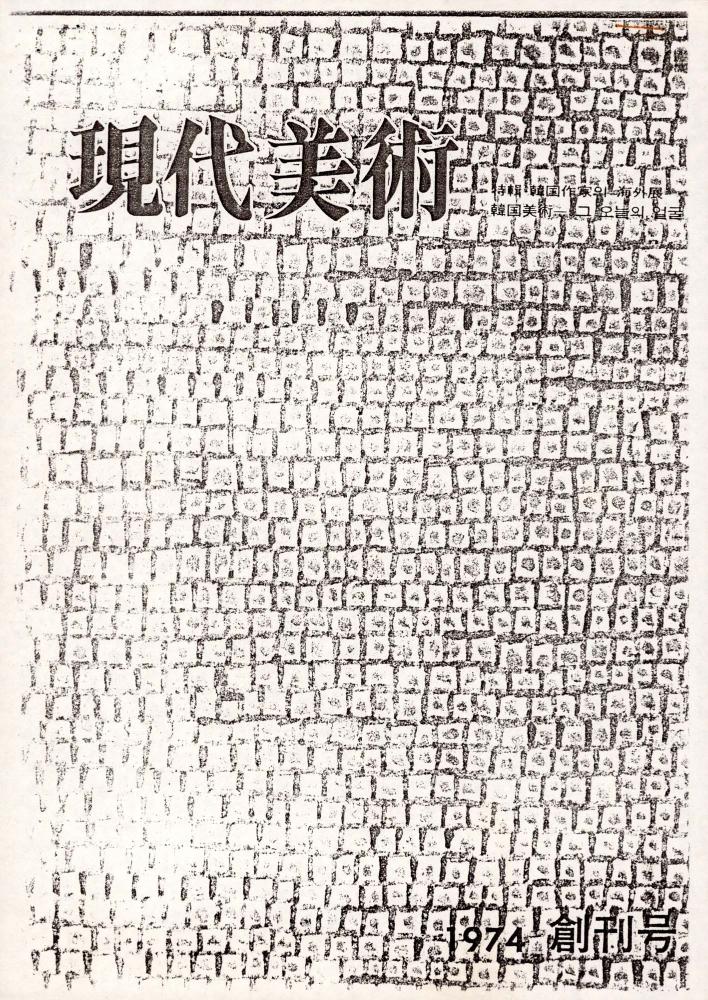 現代美術
特輯·韓国作家의 海外展
韓国美術—그 오늘의 얼굴
1974 創刊号